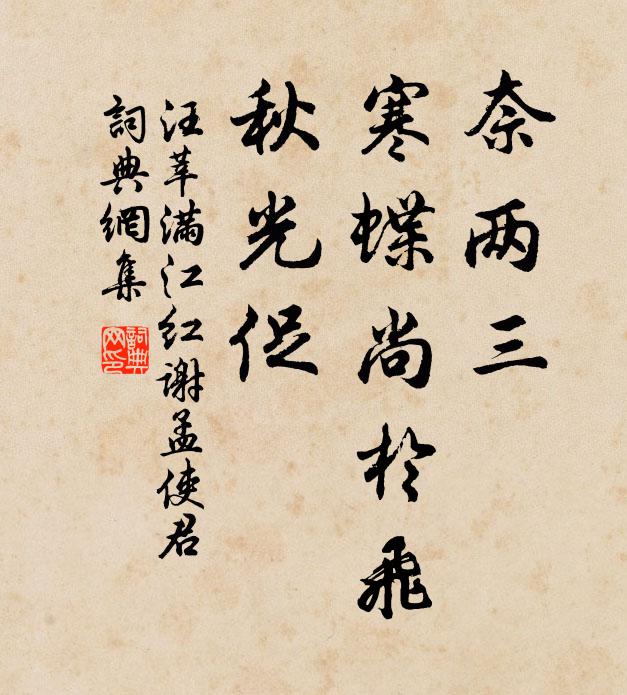 奈两三
寒蝶尚於飛
秋光促
汪莘满江红謝孟使君
詞典網集
詞典网印